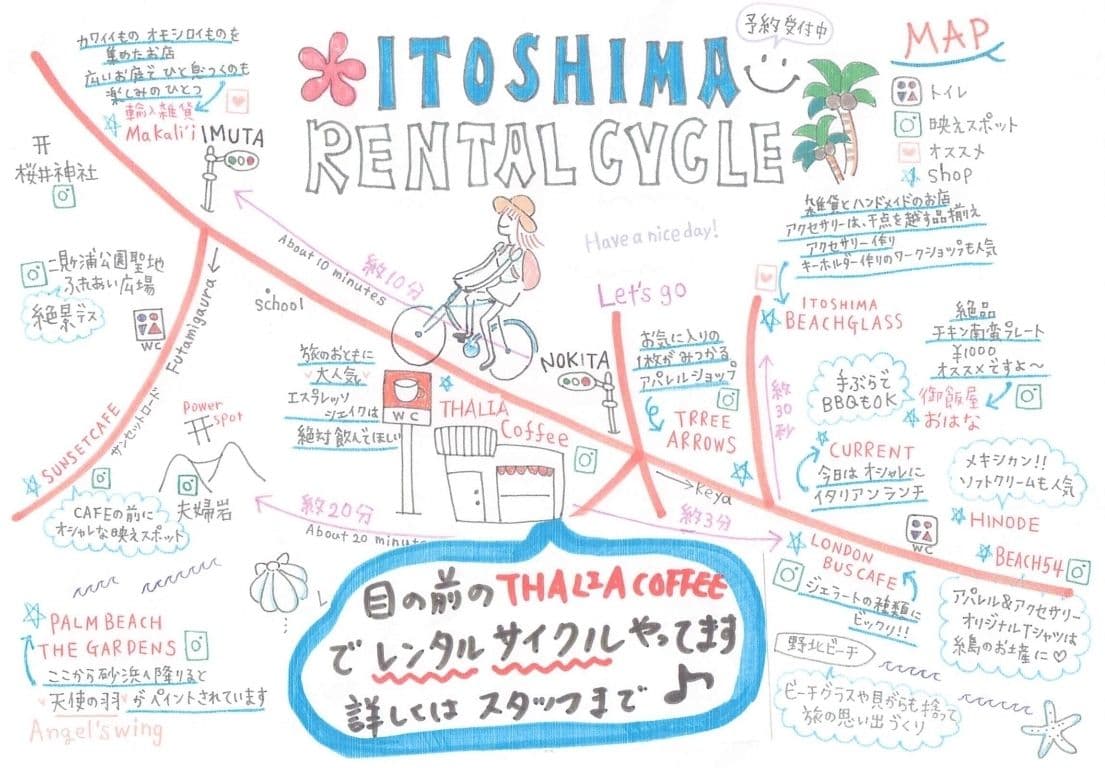 カワイイもの オモシロイものを
集めたお店
広いお庭で ひと息つくのも
楽しみのひとつ
輸入雑貨
Makali'i
IMUTA
桜井神社
予約受付中
ITOSHIMA
RENTAL CYCLE
MAP
トイレ
映えスポット
オススメ
shop
雑貨とハンドメイドのお店
アクセサリーは、千点を越す品揃え
アクセサリー作り
キーホルダー作りのワークショップも人気
ITOSHIMA
BEACHGLASS
Have a nice day!
Let's go
約10分
About 10 minutes
school
二見ヶ浦公園聖地
ふれあい広場
絶景デス
WC
Futamigaura
サンセットロード
SUNSETCAFE
CAFEの前に
オシャレな映えスポット
Power
spot
夫婦岩
旅のおともに
大人気
エスプレッソ
シェイクは
絶対飲んでほしい
WC
THALIA
Coffee
NOKITA
お気に入りの
1枚がみつかる
アパレルショップ
TRREE
ARROWS
Keya
約30秒
手ぶらで
BBQもOK
絶品
チキン南蛮プレート
¥1000
オススメですよ〜
御飯屋
おはな
CURRENT
今日はオシャレに
イタリアンランチ
メキシカン!!
ソフトクリームも人気
HINODE
WC
BEACH54
アパレル&アクセサリー
オリジナルTシャツは
糸島のお土産に♡
約20分
About 20 minute
約3分
LONDON
BUSCAFE
ジェラートの種類に
ビックリ!!
野北ビーチ
ビーチグラスや貝がらも拾って
旅の思い出づくり
PALM BEACH
THE GARDENS
ここから砂浜へ降りると
天使の羽がペイントされています
Angel'swing
目の前のTHALIA COFFEE
でレンタルサイクルやってます
詳しくはスタッフまで♪